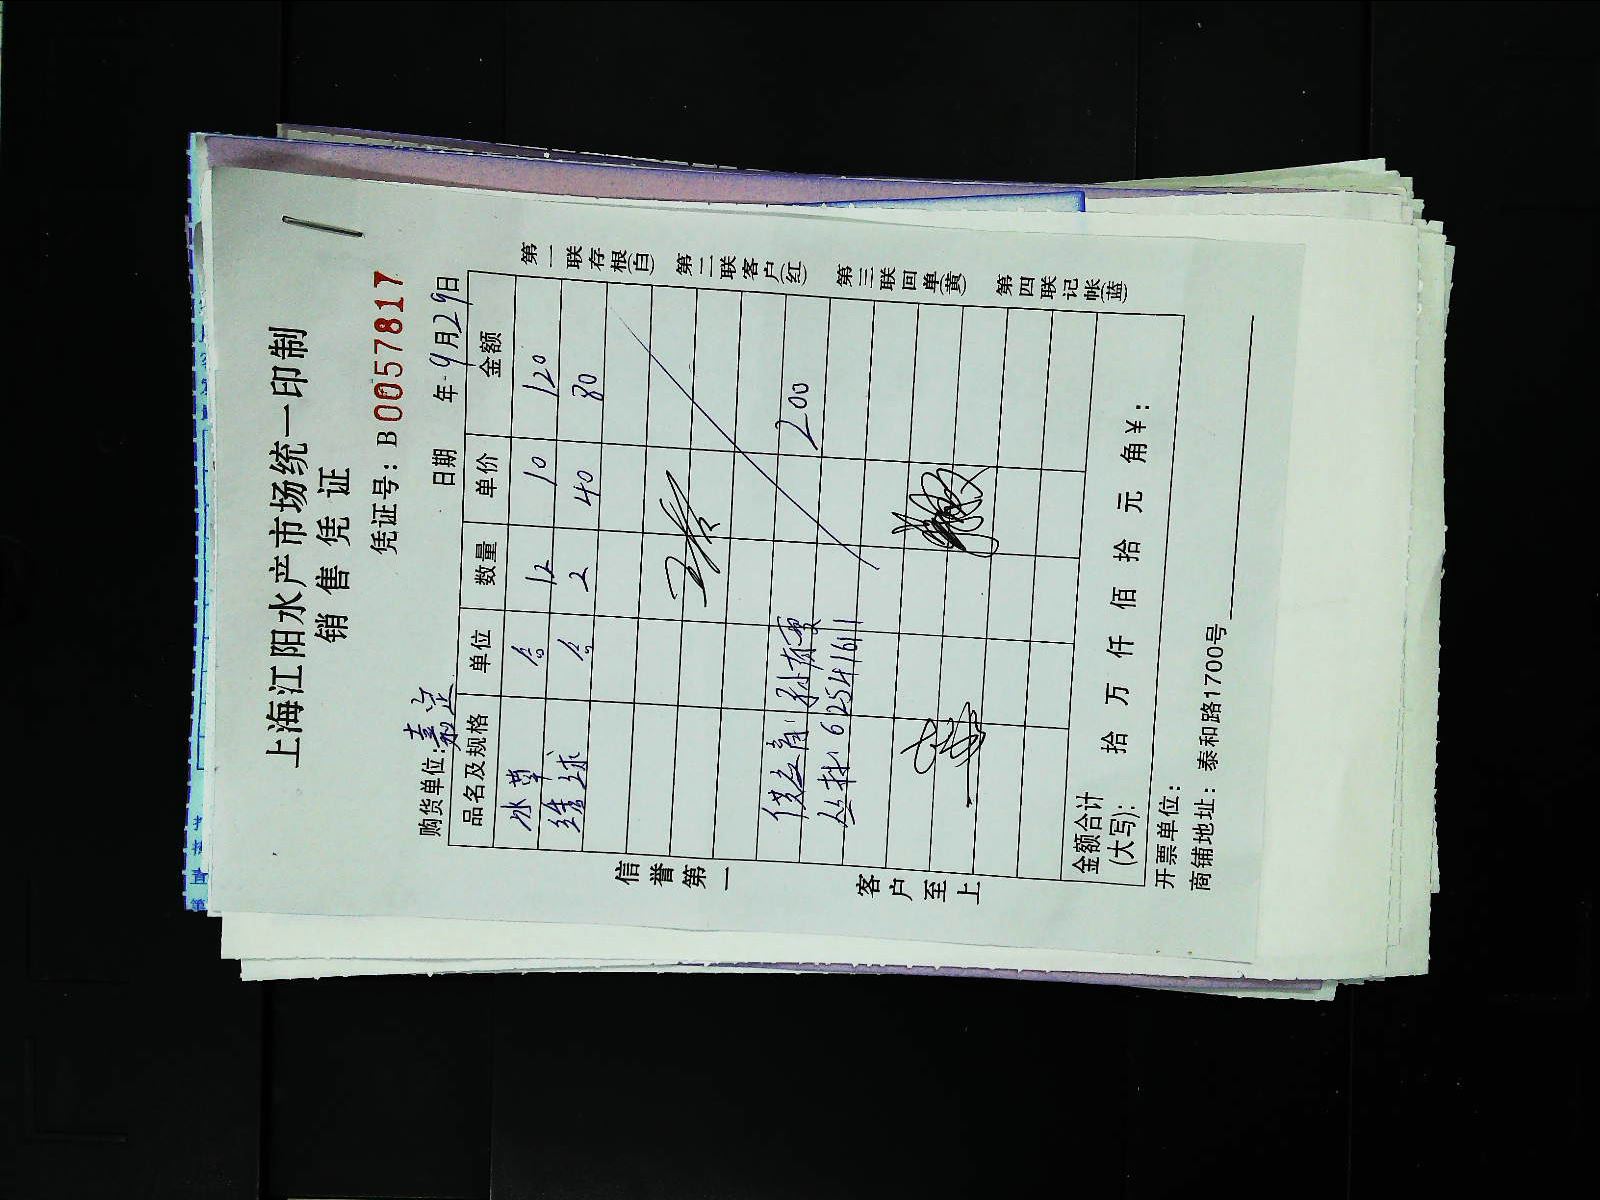 上海江阳水产市场统一印制
销售凭证
凭证号：B0057817
购货单位：嘉定 日期 年 9月29日
品名及规格 单位 数量 单价 金额
水草 12 10 120
线球 2 40 80
200
62541611
金额合计
(大写)： 拾 万 仟 佰 拾 元 角￥：
开票单位：
商铺地址：泰和路1700号
信誉第一
客户至上
第一联存根(白)
第二联客户(红)
第三联回单(黄)
第四联记帐(蓝)